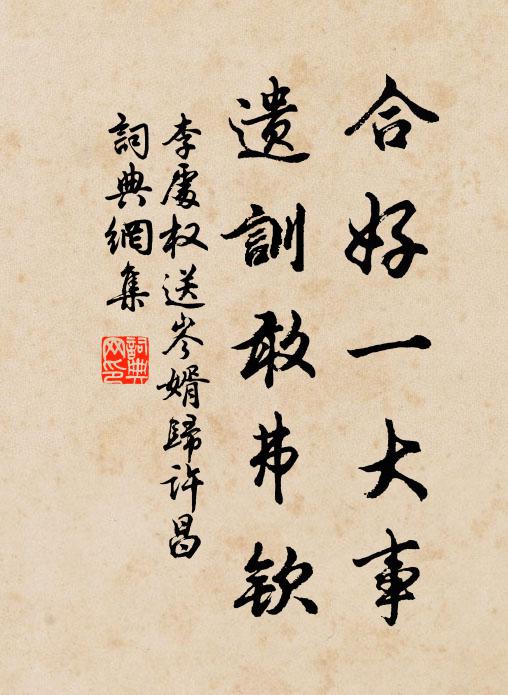 合好一大事
遗訓敢弗欽
李處权送岑婿歸许昌
詞典網集
詞典网印